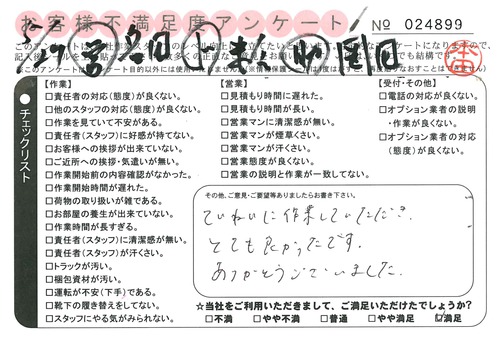 お客様不満足度アンケート
№ 024899
【作業】
□責任者の対応(態度)が良くない。
□他のスタッフの対応(態度)が良くない。
□作業を見ていて不安がある。
□責任者(スタッフ)に好感が持てない。
□お客様への挨拶が出来ていない。
□ご近所への挨拶・気遣いが無い。
□作業開始前の内容確認がなかった。
□作業開始時間が遅れた。
□荷物の取り扱いが雑である。
□お部屋の養生が出来ていない。
□作業時間が長すぎる。
□責任者(スタッフ)に清潔感が無い。
□責任者(スタッフ)が汗くさい。
□トラックが汚い。
□梱包資材が汚い。
□運転が不安(下手)である。
□靴下の履き替えをしてない。
□スタッフにやる気がみられない。
【営業】
□見積もり時間に遅れた。
□見積もり時間が長い。
□営業マンに清潔感が無い。
□営業マンが煙草くさい。
□営業マンが汗くさい。
□営業態度が良くない。
□営業の説明と作業が一致してない。
【受付・その他】
□電話の対応が良くない。
□オプション業者の説明
・作業が良くない。
□オプション業者の対応
(態度)が良くない。
チェックリスト
その他、ご意見・ご要望等ありましたらお書き下さい。
ていねいに作業していただき、
とても良かったです。
ありがとうございました。
☆当社をご利用いただきまして、ご満足いただけたでしょうか?
□不満 □やや不満 □普通 □やや満足 ☑満足